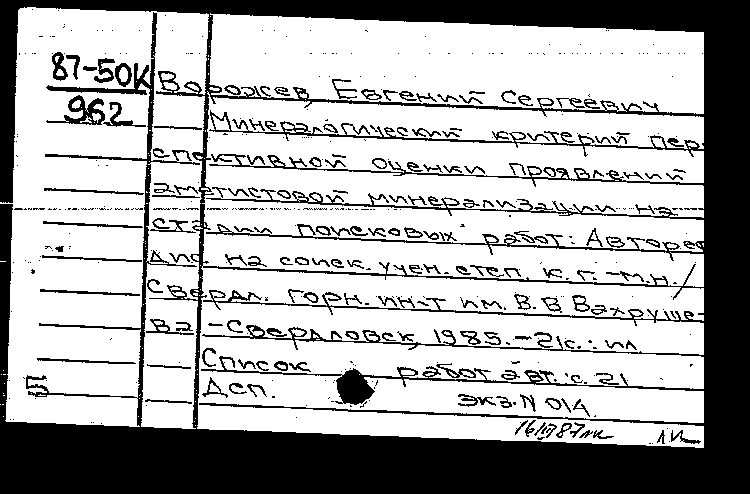 87-50К Ворожев, Евгений Сергеевич
962
Минералогический критерий пер-
спективной оценки проявлений
аметистовой минерализации на
стадии поисковых работ: Автореф
дис. на соиск. учен. степ. к. г.-м.н./
Свердл. горн. ин-т им. В.В Вахруше-
ва -Свердловск, 1985.-21с.: ил
Список работ авт.: с. 21
5 Дсп. экз.N 014.